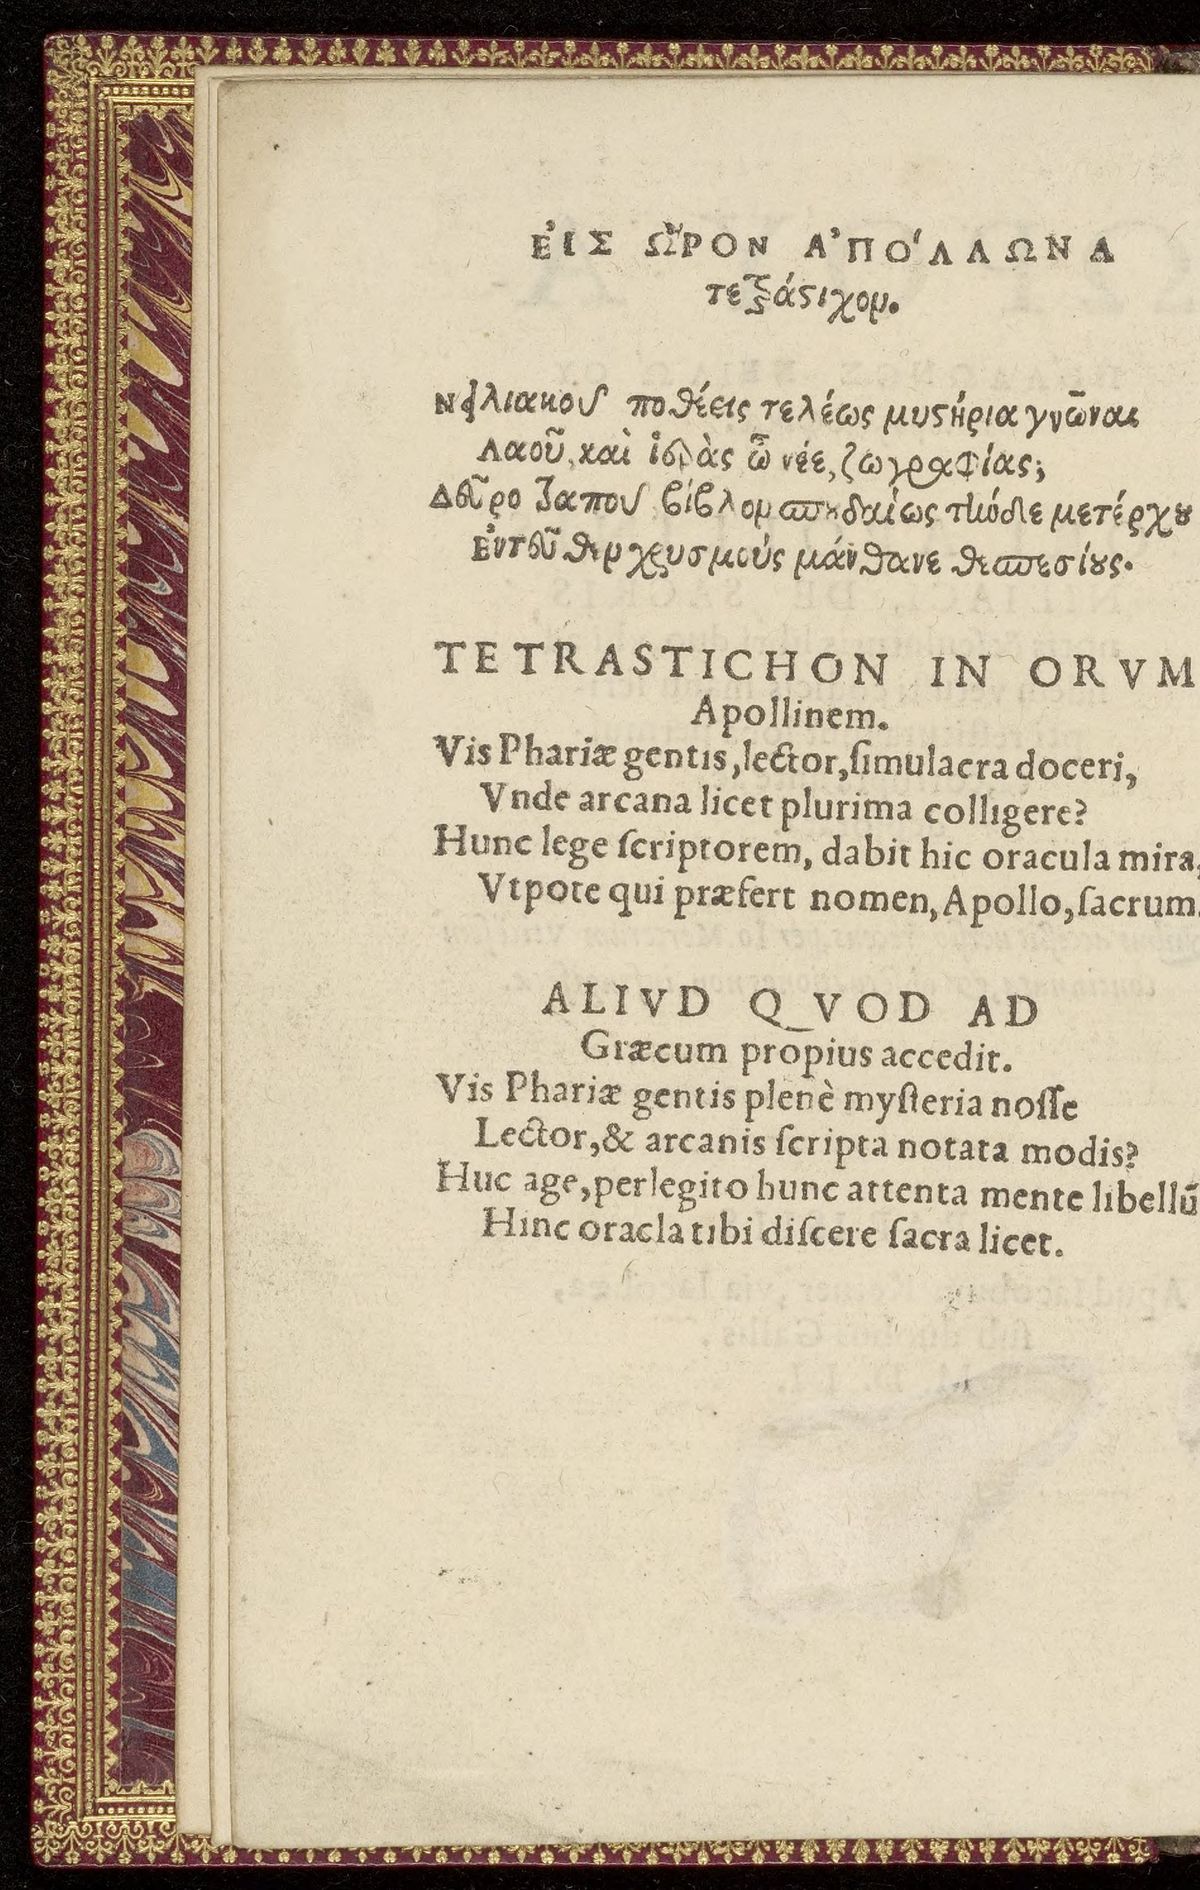 ΕἸΣ ὮΡΟΝ ἈΠΌΛΛΩΝΑ
τετράστιχον.
Νειλιακοῦ ποθέεις τελέως μυστήρια γνῶναι
Λαοῦ, καὶ ἱερὰς ὦ νέε, ζωγραφίας;
Δεῦρο βίβλον σπουδαίως τήνδε μετέρχου
Ἐντεῦθεν χρησμοὺς μάνθανε θεσπεσίους.
TETRASTICHON IN ORVM
Apollinem.
Vis Phariæ gentis, lector, ſimulacra doceri,
Vnde arcana licet plurima colligere?
Hunc lege ſcriptorem, dabit hic oracula mira,
Vtpote qui præfert nomen, Apollo, ſacrum.
ALIVD QVOD AD
Græcum propius accedit.
Vis Phariæ gentis plenè myſteria noſſe
Lector, & arcanis ſcripta notata modis?
Huc age, perlegito hunc attenta mente libellũ
Hinc oracla tibi diſcere ſacra licet.